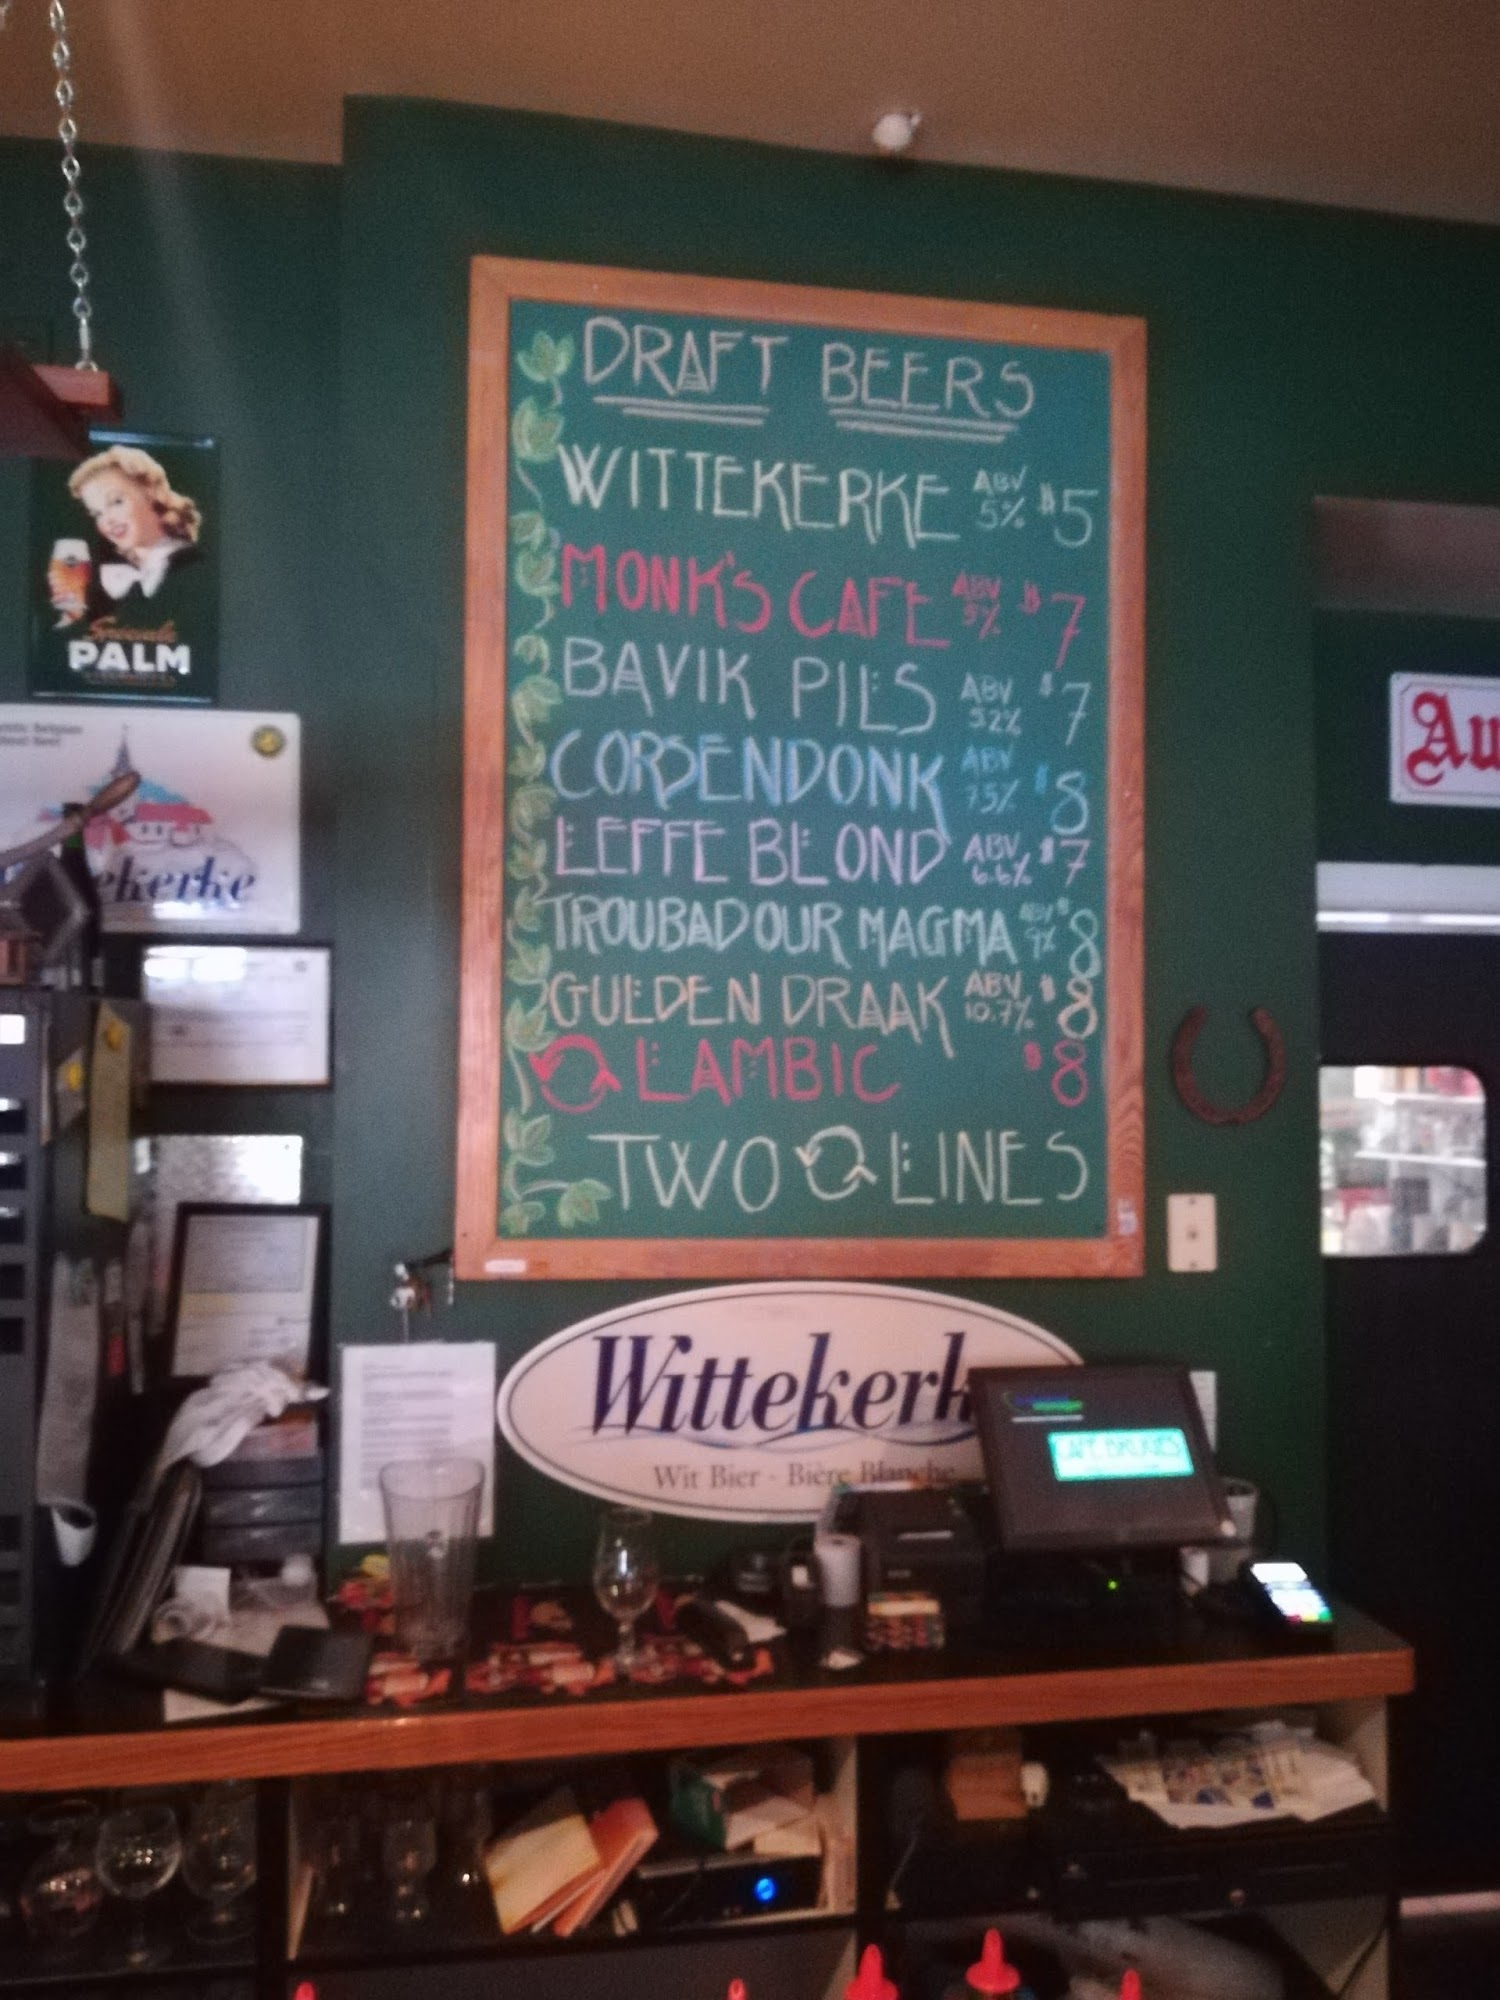 DRAFT BEERS
WITTEKERKE ABV 5% $5
MONK'S CAFE ABV 5% $7
BAVIK PILS ABV 5.2% $7
CORSENDONK ABV 7.5% $8
LEFFE BLOND ABV 6.6% $7
TROUBADOUR MAGMA ABV 9% $8
GULDEN DRAAK ABV 10.7% $8
LAMBIC $8
TWO LINES
Speciale
PALM
ekerke
Au
Wittekerk
Wit Bier - Bière Blanche
CAFE BRUGES